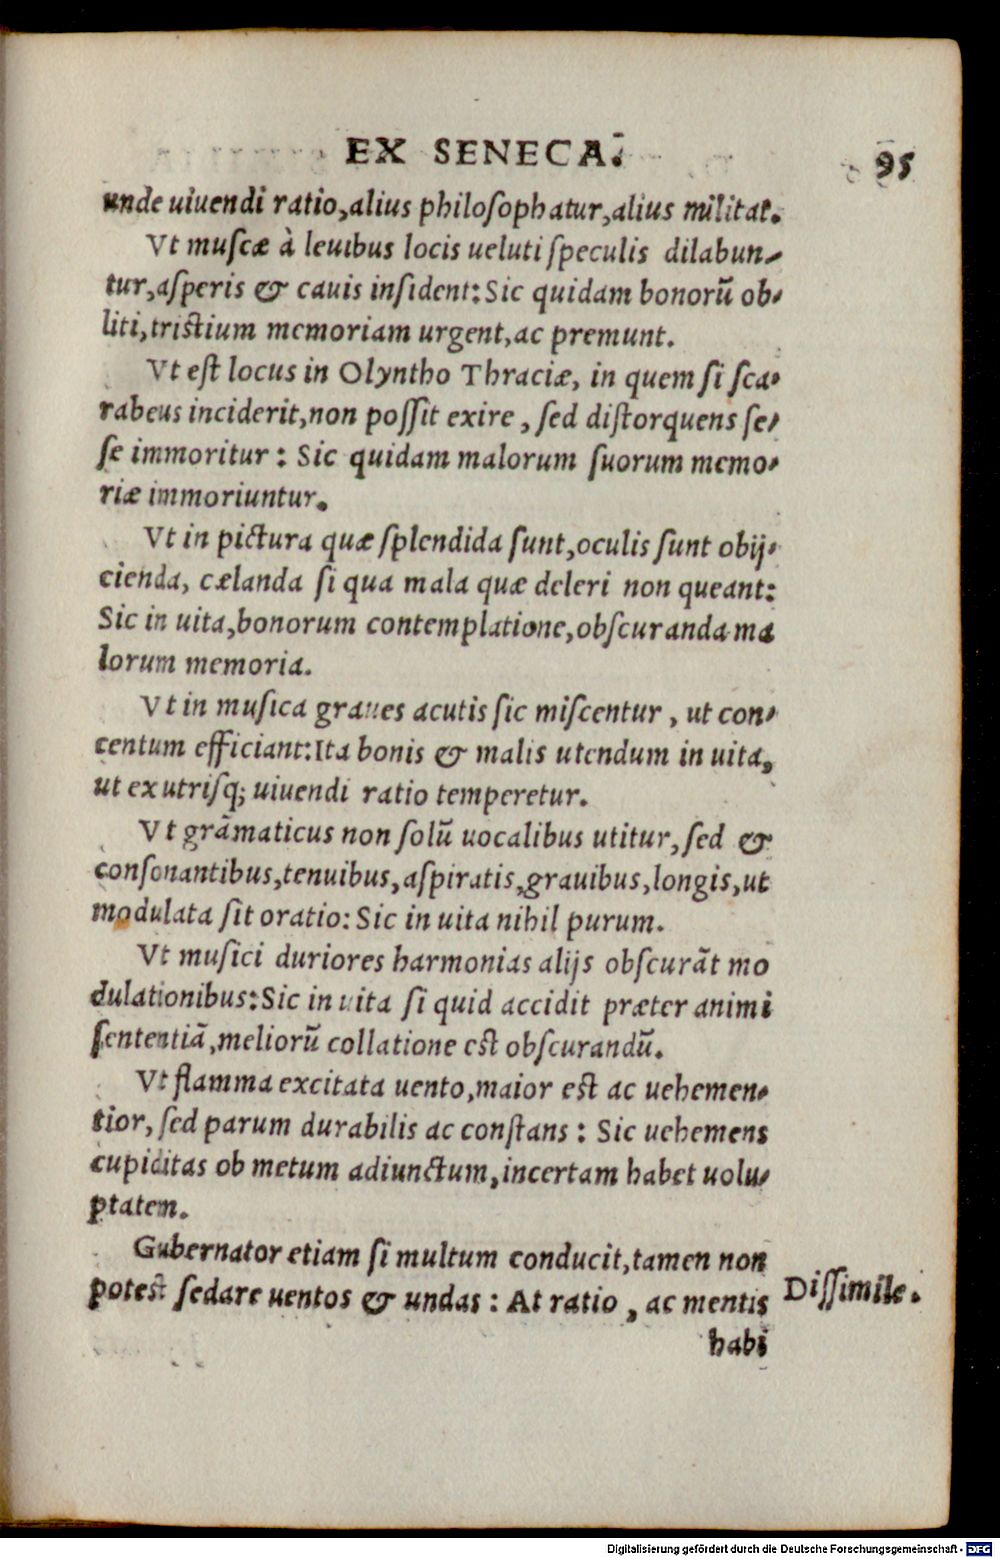 EX SENECA. 95
unde uiuendi ratio,alius philosophatur,alius militat.
Vt muscæ à leuibus locis ueluti speculis dilabun-
tur,asperis & cauis insident:Sic quidam bonorū ob-
liti,tristium memoriam urgent,ac premunt.
Vt est locus in Olyntho Thraciæ, in quem si sca-
rabeus inciderit,non possit exire, sed distorquens se-
se immoritur: Sic quidam malorum suorum memo-
riæ immoriuntur.
Vt in pictura quæ splendida sunt,oculis sunt obij-
cienda, cælanda si qua mala quæ deleri non queant:
Sic in uita,bonorum contemplatione,obscuranda ma
lorum memoria.
Vt in musica graues acutis sic miscentur, ut con-
centum efficiant:Ita bonis & malis utendum in uita,
ut ex utrisq; uiuendi ratio temperetur.
Vt grāmaticus non solū uocalibus utitur, sed &
consonantibus,tenuibus,aspiratis,grauibus,longis,ut
modulata sit oratio: Sic in uita nihil purum.
Vt musici duriores harmonias alijs obscurāt mo
dulationibus:Sic in uita si quid accidit præter animi
sententiā,meliorū collatione est obscurandū.
Vt flamma excitata uento,maior est ac uehemen-
tior, sed parum durabilis ac constans: Sic uehemens
cupiditas ob metum adiunctum,incertam habet uolu-
ptatem.
Gubernator etiam si multum conducit,tamen non
potest sedare uentos & undas: At ratio, ac mentis
Dissimile.
habi
Digitalisierung gefördert durch die Deutsche Forschungsgemeinschaft - DFG